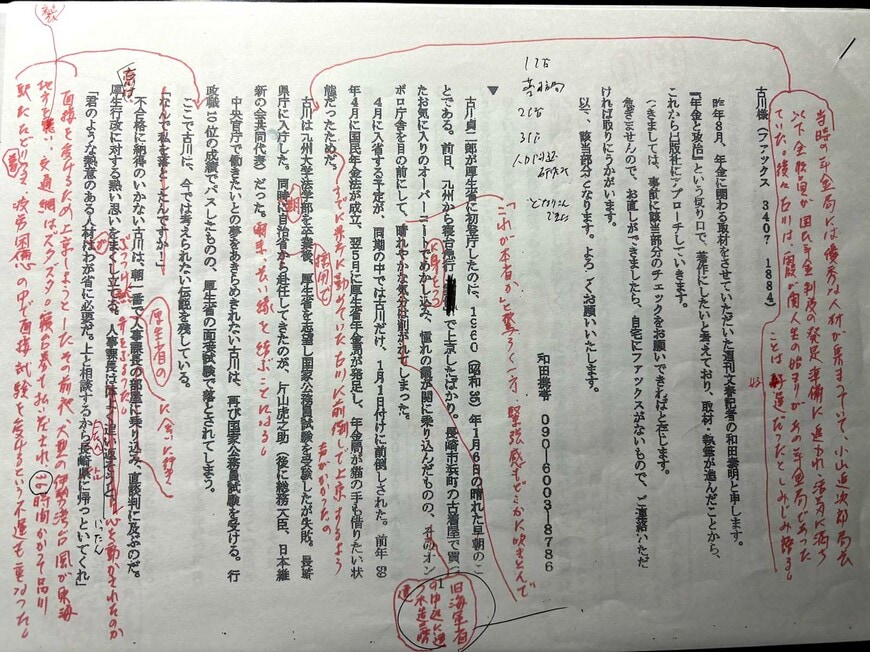 古川様 (ファックス 3407 1884)
昨年8月、年金に関わる取材をさせていただいた週刊文春記者の和田泰明と申します。
『年金と政治』という切り口で、著作にしたいと考えており、取材・執筆が進んだことから、
これから出版社にアプローチしていきます。
つきましては、事前に該当部分のチェックをお願いできればと存じます。
急ぎませんので、お直しができましたら、自宅にファックスがないもので、ご連絡いただ
ければ取りにうかがいます。
以下、該当部分となります。よろしくお願いいたします。
和田携帯 090-6003-8786
▼
古川貞二郎が厚生省に初登庁したのは、1960(昭和35)年1月6日の晴れた早朝のこ
とである。前日、九州から寝台急行で上京したばかり。長崎市浜町の古着屋で買っ
たお気に入りのオーバーコートでめかし込み、憧れの霞が関に乗り込んだものの、
ボロ庁舎を目の前にして、晴れやかな気分は削がれてしまった。
4月に入省する予定が、同期の中では古川だけ、1月1日付けに前倒しされた。前年(59
年4月に国民年金法が成立、翌5月に厚生省年金局が発足し、年金局が猫の手も借りたい状
態だったためだ。
古川は九州大学法学部を卒業後、厚生省を志望し国家公務員試験を受験したが失敗。長崎
県庁に入庁した。同時に自治省から赴任してきたのが、片山虎之助(後に総務大臣、日本維
新の会共同代表)だった。
中央官庁で働きたいとの夢をあきらめきれない古川は、再び国家公務員試験を受ける。行
政職10位の成績でパスしたものの、厚生省の面接試験で落とされてしまう。
ここで古川に、今では考えられない伝説を残している。
「なんで私を落としたんですか!」
不合格に納得のいかない古川は、朝一番で人事課長の部屋に乗り込み、直談判に及ぶのだ。
厚生行政に対する熱い思いをまくし立てる。人事課長は
「君のような熱意のある人材はわが省に必要だ。上と相談するから長崎県に帰っといてくれ」
当時の年金局には優秀な人材が集まっていて、小山進次郎局長
以下全職員が国民年金制度の発足準備に追われ活気に満ち
ていた。後々古川は、
「これが本省か」と驚く一方、緊張感もどこかに吹きとんで
すでに県庁に勤めていた古川に前倒しで上京するよう
声がかかったの
厚生省の
に会いに行き
心を動かされたのか
面接を受けるため上京しようとしたその前夜、大型の伊勢湾台風が東海
地方を襲い、交通網はズタズタ。
駅にたどりつき、疲労困憊の中で面接試験を受けるという不運も重なった。